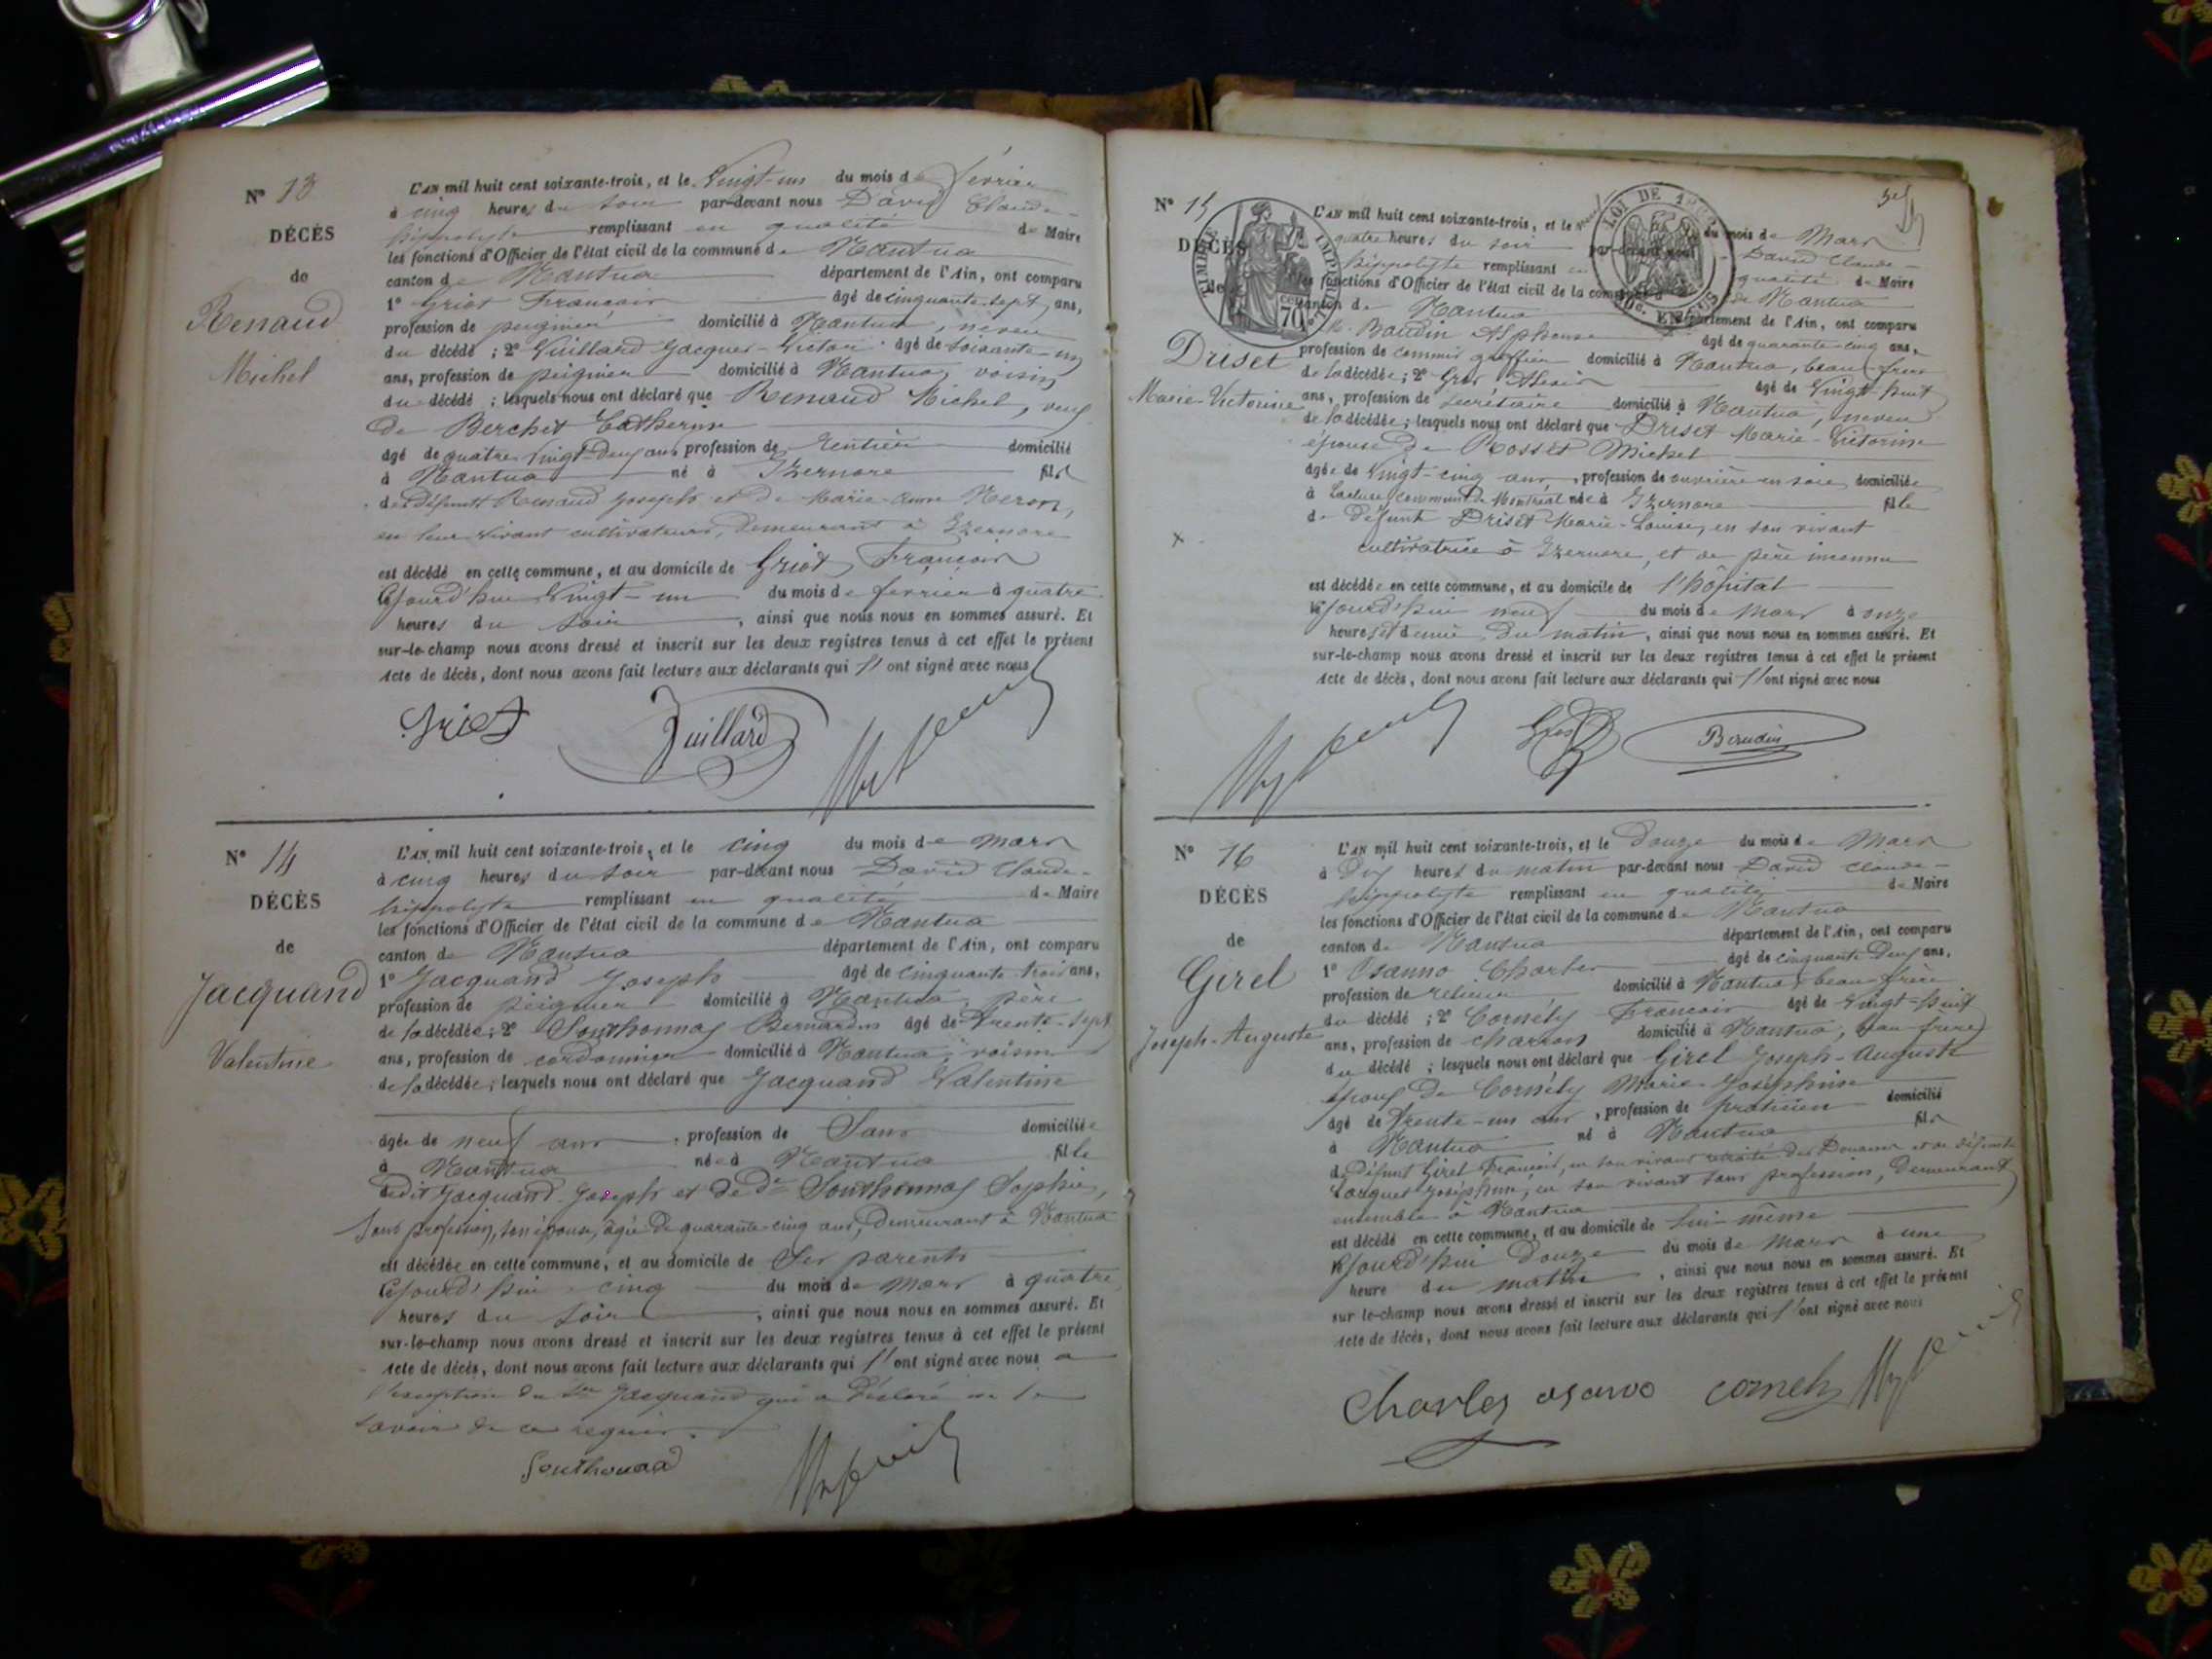 N° 13
DÉCÈS
de
Renaud
Michel
L'AN mil huit cent soixante-trois, et le Vingt-un du mois de février
à cinq heures du soir par-devant nous David Claude-
hippolyte remplissant en qualité de Maire
les fonctions d'Officier de l'état civil de la commune de Nantua
canton de Nantua département de l'Ain, ont comparu
1° Griot François âgé de cinquante-sept ans,
profession de peignier domicilié à Nantua, neveu
du décédé ; 2° Vuillard Jacques-Victor âgé de soixante-un
ans, profession de peignier domicilié à Nantua, voisin
du décédé ; lesquels nous ont déclaré que Renaud Michel, veuf
de Berchet Catherine
âgé de quatre-vingt-deux ans profession de rentier domicilié
à Nantua né à Izernore fils
des défunts Renaud Joseph et de Marie-Anne Neron,
en leur vivant cultivateurs, demeurant à Izernore
est décédé en cette commune, et au domicile de Griot François
cejourd'hui vingt-un du mois de février à quatre
heures du soir, ainsi que nous nous en sommes assuré. Et
sur-le-champ nous avons dressé et inscrit sur les deux registres tenus à cet effet le présent
Acte de décès, dont nous avons fait lecture aux déclarants qui l'ont signé avec nous
Griot Vuillard
N° 14
DÉCÈS
de
Jacquand
Valentine
L'AN mil huit cent soixante-trois, et le cinq du mois de Mars
à cinq heures du soir par-devant nous David Claude-
hippolyte remplissant en qualité de Maire
les fonctions d'Officier de l'état civil de la commune de Nantua
canton de Nantua département de l'Ain, ont comparu
1° Jacquand Joseph âgé de cinquante-trois ans,
profession de peignier domicilié à Nantua, père
de la décédée ; 2° Southonnax Bernardin âgé de trente-sept
ans, profession de cordonnier domicilié à Nantua, voisin
de la décédée ; lesquels nous ont déclaré que Jacquand Valentine
âgée de neuf ans, profession de Sans domiciliée
à Nantua née à Nantua fille
dudit Jacquand Joseph et de De Southonnax Sophie,
sans profession, son épouse, âgée de quarante-cinq ans, demeurant à Nantua
est décédée en cette commune, et au domicile de Ses parents
cejourd'hui cinq du mois de Mars à quatre
heures du soir, ainsi que nous nous en sommes assuré. Et
sur-le-champ nous avons dressé et inscrit sur les deux registres tenus à cet effet le présent
Acte de décès, dont nous avons fait lecture aux déclarants qui l'ont signé avec nous a
l'exception du Sr Jacquand qui a déclaré ne le
savoir de ce requis.
Southonnax
N° 15
DÉCÈS
de
Driset
Marie-Victorine
TIMBRE IMPERIAL
70
LOI DE
EN SUS
L'AN mil huit cent soixante-trois, et le neuf du mois de Mars
quatre heures du soir par-devant nous David Claude-
hippolyte remplissant en qualité de Maire
les fonctions d'Officier de l'état civil de la commune de Nantua
canton de Nantua département de l'Ain, ont comparu
1° Baudin Alphonse âgé de quarante-cinq ans,
profession de commis greffier domicilié à Nantua, beau-frère
de la décédée ; 2° Gros Alexis âgé de vingt-huit
ans, profession de secrétaire domicilié à Nantua, neveu
de la décédée ; lesquels nous ont déclaré que Driset Marie-Victorine
épouse de Rosset Michel
âgée de vingt-cinq ans, profession de ouvrière en soie domiciliée
à commune de Montréal née à Izernore fille
de défunte Driset Marie-Louise, en son vivant
cultivatrice à Izernore, et de père inconnu
est décédée en cette commune, et au domicile de l'hôpital
cejourd'hui neuf du mois de Mars à onze
heures et demie du matin, ainsi que nous nous en sommes assuré. Et
sur-le-champ nous avons dressé et inscrit sur les deux registres tenus à cet effet le présent
Acte de décès, dont nous avons fait lecture aux déclarants qui l'ont signé avec nous
Gros Baudin
N° 16
DÉCÈS
de
Girel
Joseph-Auguste
L'AN mil huit cent soixante-trois, et le Douze du mois de Mars
à Dix heures du matin par-devant nous David Claude-
hippolyte remplissant en qualité de Maire
les fonctions d'Officier de l'état civil de la commune de Nantua
canton de Nantua département de l'Ain, ont comparu
1° Osanno Charles âgé de cinquante-deux ans,
profession de relieur domicilié à Nantua, beau-frère
du décédé ; 2° Cornély François âgé de vingt-huit
ans, profession de charron domicilié à Nantua, beau-frère
du décédé ; lesquels nous ont déclaré que Girel Joseph-Auguste
époux de Cornély Marie-Joséphine
âgé de trente-un ans, profession de praticien domicilié
à Nantua né à Nantua fils
de défunt Girel François, en son vivant retraité des Douanes et de défunte
Joséphine, en son vivant sans profession, demeurant
ensemble à Nantua
est décédé en cette commune, et au domicile de lui-même
cejourd'hui Douze du mois de Mars à une
heure du matin, ainsi que nous nous en sommes assuré. Et
sur-le-champ nous avons dressé et inscrit sur les deux registres tenus à cet effet le présent
Acte de décès, dont nous avons fait lecture aux déclarants qui l'ont signé avec nous
Charles osanno cornely